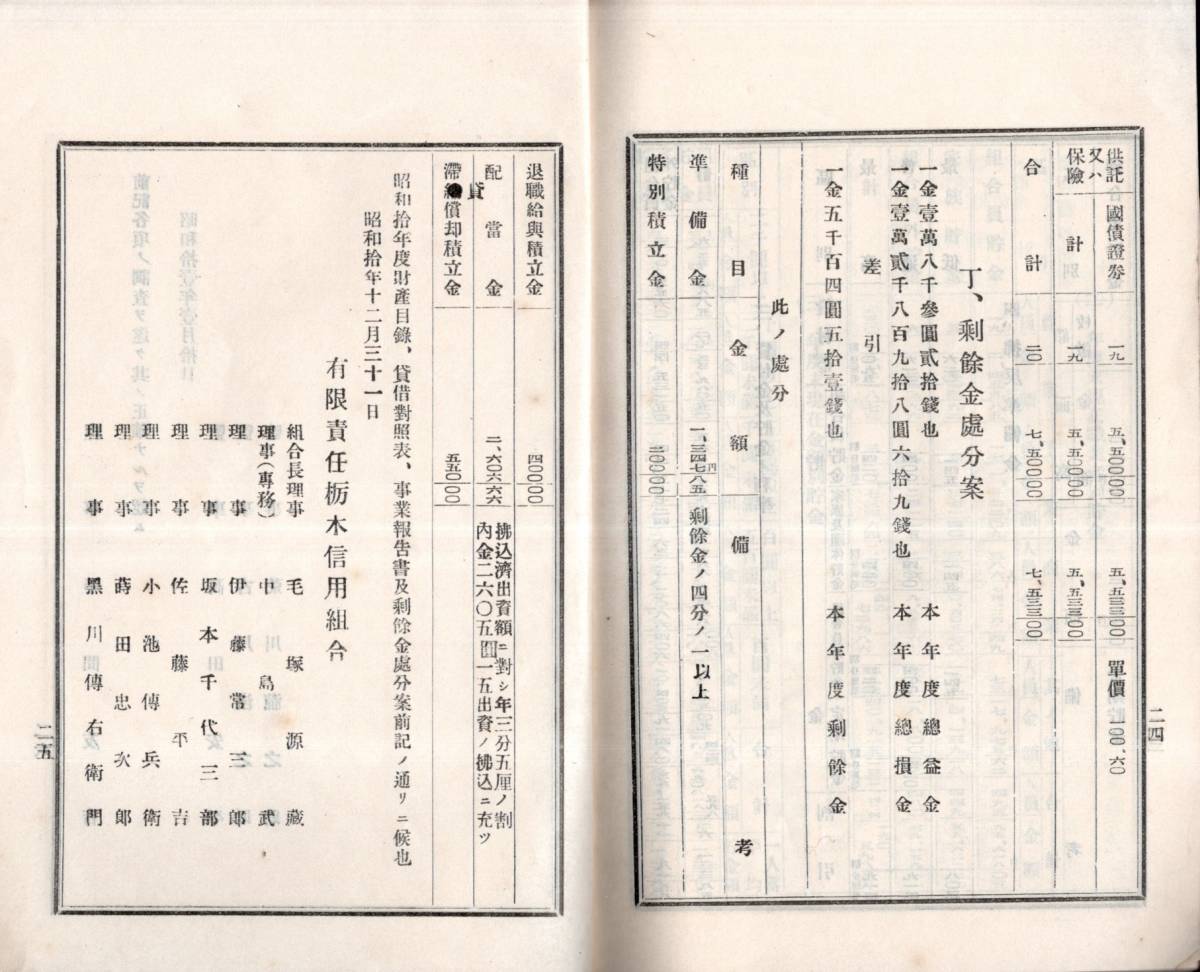 供託又ハ保險 國債證券 一九 五、五〇〇〇〇 五、五三三〇〇 單價一〇〇、六〇
計 一九 五、五〇〇〇〇 五、五三三〇〇
合計 二〇 七、五〇〇〇〇 七、五三三〇〇
丁、剩餘金處分案
一金壹萬八千參圓貳拾錢也 本年度總益金
一金壹萬貳千八百九拾八圓六拾九錢也 本年度總損金
差引
一金五千百四圓五拾壹錢也 本年度剩餘金
此ノ處分
種目 金額 備考
準備金 一、三四七八五 剩餘金ノ四分ノ一以上
特別積立金 二〇〇〇〇
二四
退職給與積立金 四〇〇〇〇
配當金 二、六〇六六六 拂込濟出資額ニ對シ年三分五厘ノ割
內金二六〇五圓一五出資ノ拂込ニ充ツ
滯貸償却積立金 五五〇〇〇
昭和拾年度財產目錄、貸借對照表、事業報告書及剩餘金處分案前記ノ通リニ候也
昭和拾年十二月三十一日
有限責任栃木信用組合
組合長理事 毛塚源藏
理事(專務) 中島武
理事 伊藤常三郎
理事 坂本千代三郎
理事 佐藤平吉
理事 小池傳兵衛
理事 蒔田忠次郎
理事 黑川傳右衛門
二五